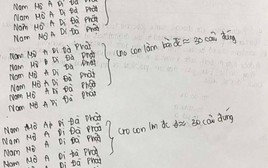 Nam Mô A Di Đà Phật
Nam Mô A Di Đà Phật
Nam Mô A Di Đà Phật
Nam Mô A Di Đà Phật
Nam Mô A Di Đà Phật
Nam Mô A Di Đà Phật cho con làm bài đc ≈ 30 câu đúng
Nam Mô A Di Đà Phật
Nam Mô A Di Đà Phật
Nam Mô A Di Đà Phật
Nam Mô A Di Đà Phật
Nam Mô A Di Đà Phật cho con lm đc ≈ 30 câu đúng
Nam Mô A Di Đà Phật
Nam Mô A Di Đà Phật
A Di Đà Phật